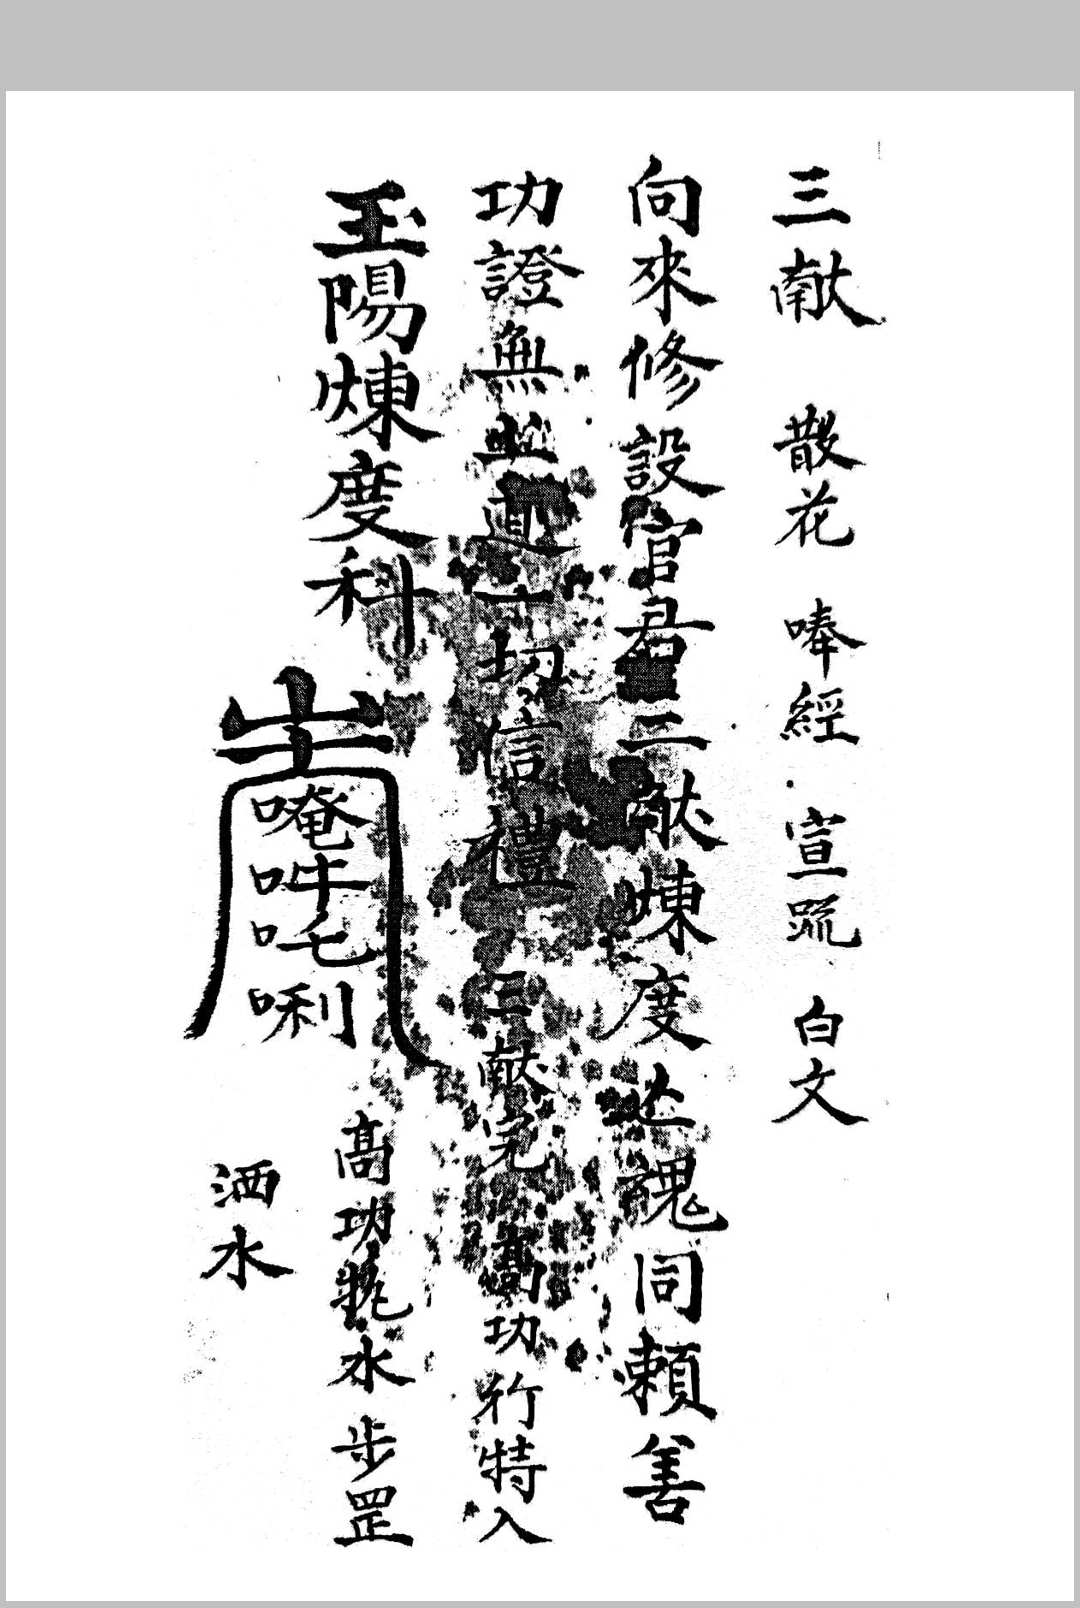 三献 散花 唪經 宣疏 白文
向來修設官君二献煉度迷魂同賴善
功證無上道一切信禮 三献完 高功行特入
玉陽煉度科
唵吽吒唎
高功執水步罡
洒水